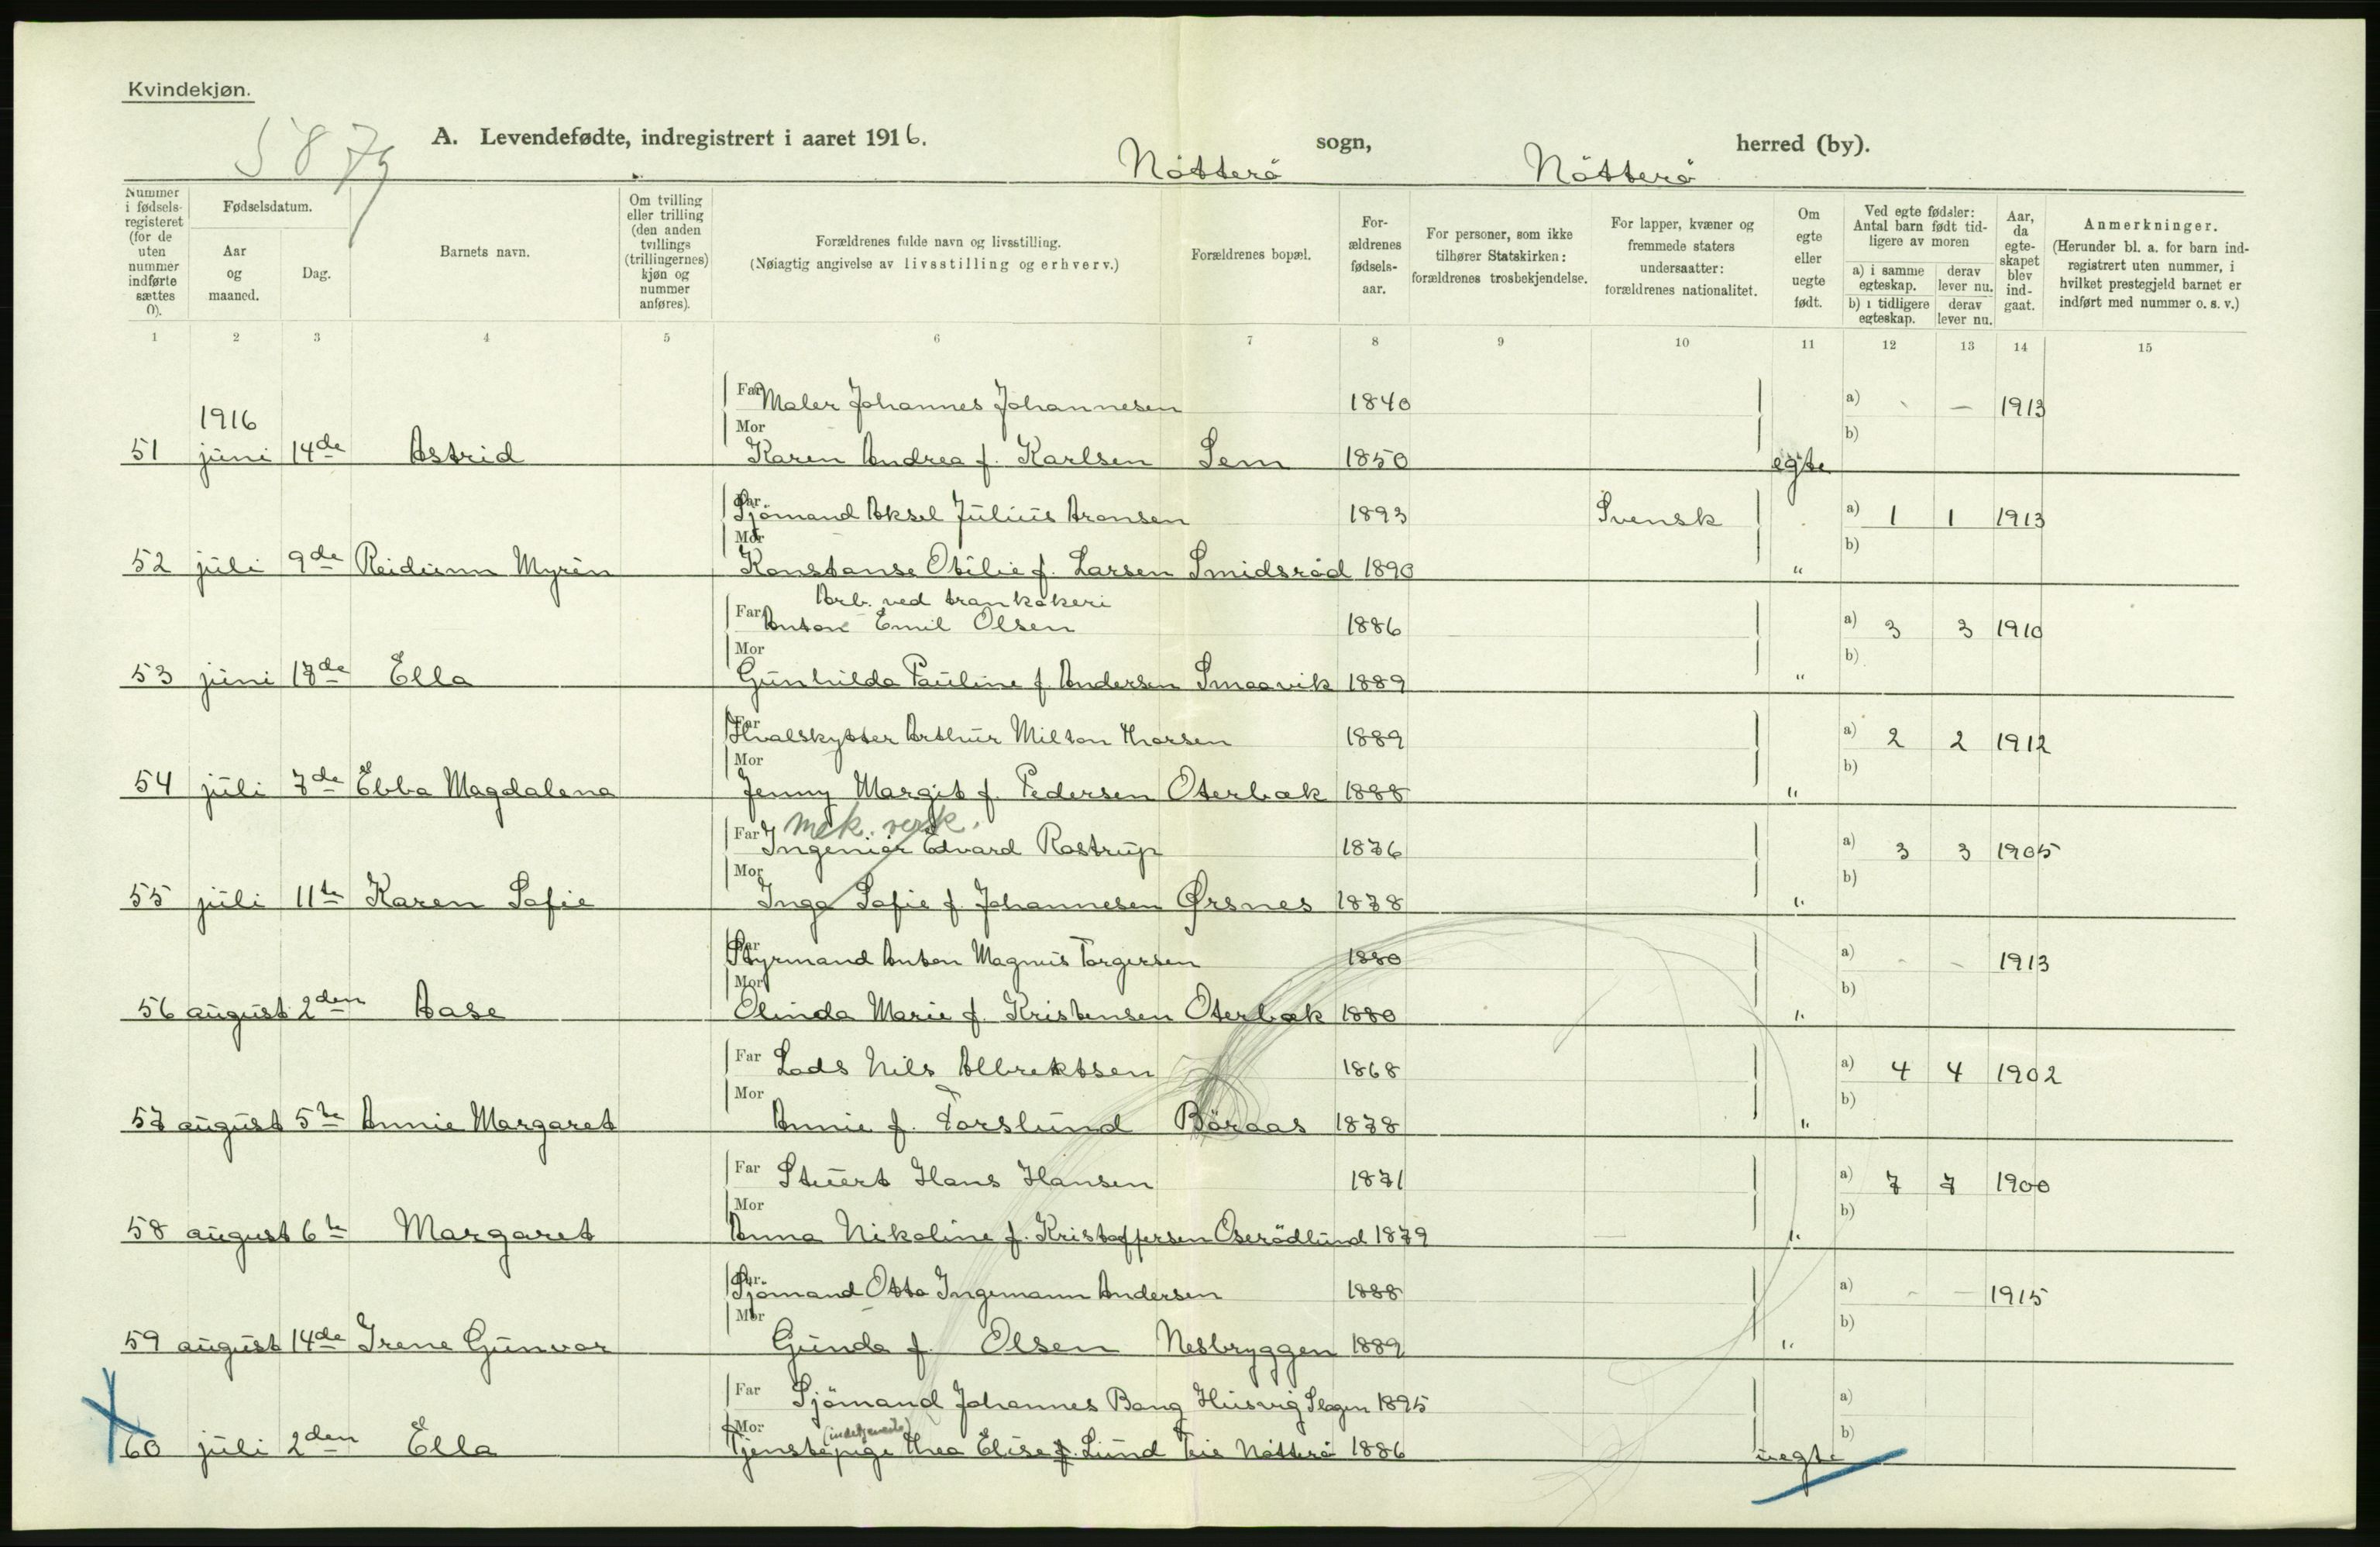 Kvindekjøn.
5879
A. Levendefødte, indregistrert i aaret 1916. Nötterö sogn, Nötterö herred (by).
Nummer i fødselsregisteret (for de uten nummer indførte sættes 0).
Fødselsdatum.
Aar og maaned.
Dag.
Barnets navn.
Om tvilling eller trilling (den anden tvillings (trillingernes) kjøn og nummer anføres).
Forældrenes fulde navn og livsstilling.
(Nøiagtig angivelse av livsstilling og erhverv.)
Forældrenes bopæl.
Forældrenes fødselsaar.
For personer, som ikke tilhører Statskirken: forældrenes trosbekjendelse.
For lapper, kvæner og fremmede staters undersaatter: forældrenes nationalitet.
Om egte eller uegte født.
Ved egte fødsler: Antal barn født tidligere av moren
a) i samme egteskap. derav lever nu.
b) i tidligere egteskap. derav lever nu.
Aar, da egteskapet blev indgaat.
Anmerkninger.
(Herunder bl. a. for barn indregistrert uten nummer, i hvilket prestegjeld barnet er indført med nummer o. s. v.)
1 2 3 4 5 6 7 8 9 10 11 12 13 14 15
1916
Far Maler Johannes Johannesen 1840 a) - — 1913
51 juni 14de Astrid Mor Karen Andrea f. Karlsen Sem 1850 egte b)
Far Sjömand Aksel Julius Aronsen 1893 Svensk a) 1 1 1913
52 juli 9de Reidunn Myrin Mor Konstanse Otilie f. Larsen Smidsröd 1890 " b)
Arb. ved trankokeri
Far Anton Emil Olsen 1886 a) 3 3 1910
53 juni 18de Ella Mor Gunhilda Pauline f. Andersen Smaavik 1889 " b)
Far Hvalskytter Arthur Milton Thorsen 1889 a) 2 2 1912
54 juli 7de Ebba Magdalena Mor Jenny Margit f. Pedersen Oterbæk 1888 " b)
mek. verk.
Far Ingeniör Edvard Rostrup 1876 a) 3 3 1905
55 juli 11te Karen Sofie Mor Inga Sofie f. Johannesen Ørsnes 1878 " b)
Far Styrmand Anton Magnus Torgersen 1880 a) - - 1913
56 august 2den Aase Mor Olinda Marie f. Kristensen Oterbæk 1880 " b)
Far Lods Nils Albrektsen 1868 a) 4 4 1902
57 august 5te Annie Margaret Mor Annie f. Forslund Böraas 1878 " b)
Far Stuert Hans Hansen 1871 a) 7 7 1900
58 august 6te Margaret Mor Anna Nikoline f. Kristoffersen Oserödlund 1879 " b)
Far Sjömand Otto Ingemann Andersen 1888 a) - — 1915
59 august 14de Irene Gunvor Mor Gunda f. Olsen Nesbryggen 1889 " b)
Far Sjömand Johannes Bang Husvig Slagen 1895 a)
60 juli 2den Ella Mor Tjenstepige Thea Elise f. Lund Teie Nötterö 1886 uegte b)